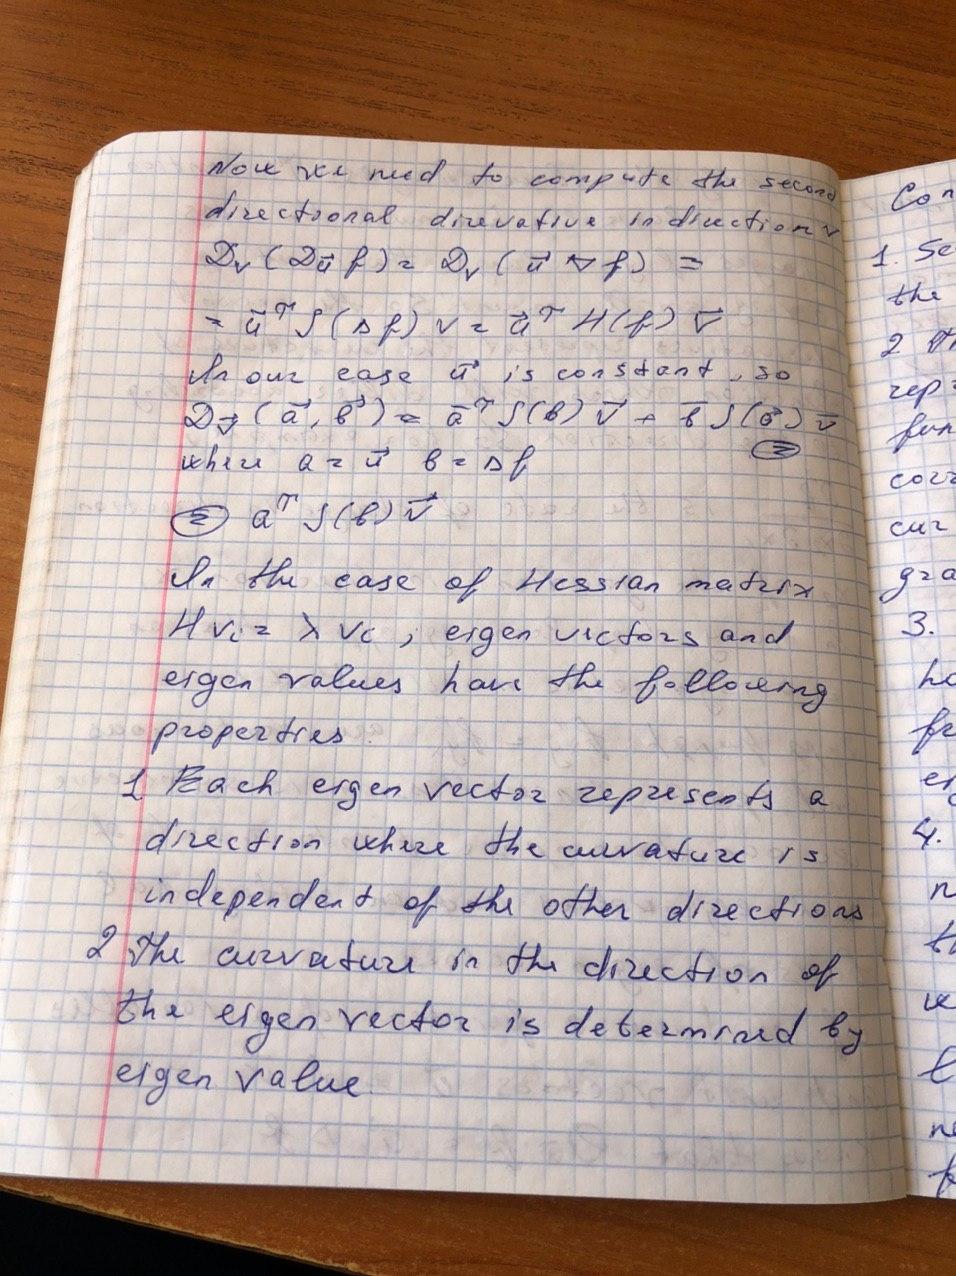 Now we need to compute the second
directional direvative in direction v
D_v (D_u⃗ f) = D_v (u⃗ ∇ f) =
= u⃗^T J(Δf) v = u⃗^T H(f) v⃗
In our case u⃗ is constant, so
D_v⃗ (a⃗, b⃗) = a⃗^T J(b) v⃗ + b⃗ J(a⃗) v⃗ =
where a = u⃗ b = Δf
= a^T J(b) v⃗
In the case of Hessian matrix
H v_i = λ v_i, eigen vectors and
eigen values have the following
properties.
1. Each eigen vector represents a
direction where the curvature is
independent of the other directions
2 The curvature in the direction of
the eigen vector is determined by
eigen value.
Con
1. Se
the
2 Th
rep
fun
corr
cur
gra
3.
ho
fr
4.